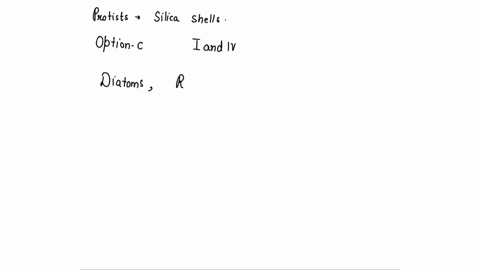 Protists → Silica shells.
Option-C I and IV
Diatoms, R